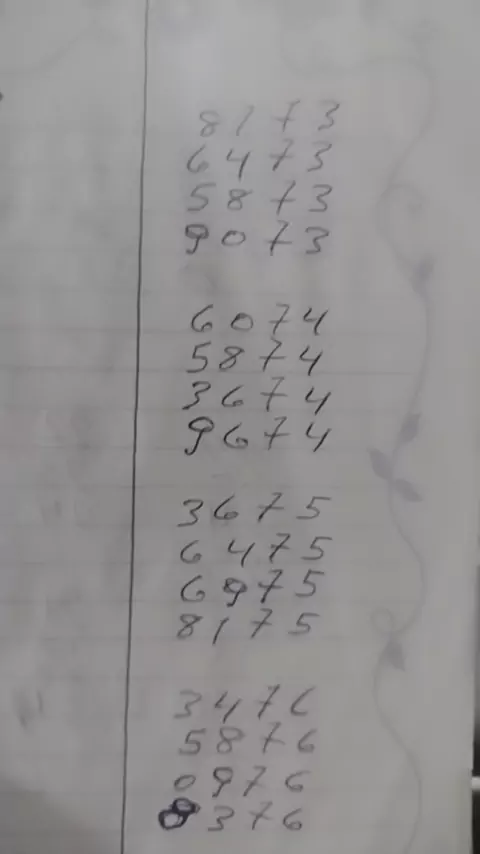 8173
6473
5873
9073
6074
5874
3674
9674
3675
6475
6975
8175
3476
5876
0976
8376